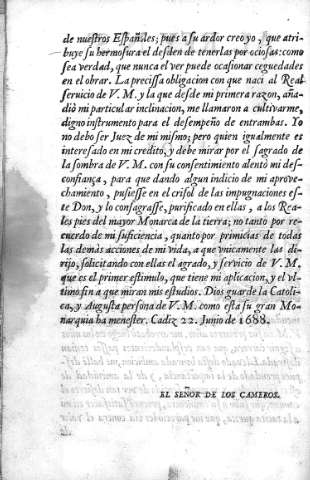 de nuestros Españoles; pues a su ardor creo yo, que atri-
buye su hermosura el desden de tenerlas por ociosas: como
sea verdad, que nunca el ver puede ocasionar ceguedades
en el obrar. La precissa obligacion con que nací al Real
servicio de V. M. y la que desde mi primera razon, aña-
dió mi particular inclinacion, me llamaron a cultivarme,
digno instrumento para el desempeño de entrambas. Yo
no debo ser Juez de mi mismo; pero quien igualmente es
interesado en mi credito, y debe mirar por el sagrado de
la sombra de V. M. con su consentimiento alentó mi des-
confiança, para que dando algun indicio de mi aprove-
chamiento, pusiesse en el crisol de las impugnaciones es-
te Don, y lo consagrasse, purificado en ellas, a los Rea-
les pies del mayor Monarca de la tierra; no tanto por re-
cuerdo de mi suficiencia, quanto por primicias de todas
las demàs acciones de mi vida, a que vnicamente las di-
rijo, solicitando con ellas el agrado, y servicio de V. M.
que es el primer estimulo, que tiene mi aplicacion, y el vl-
timo fin a que miran mis estudios. Dios guarde la Catoli-
ca, y Augusta persona de V. M. como està su gran Mo-
narquia ha menester. Cadiz 22. Junio de 1688.
EL SEÑOR DE LOS CAMEROS.